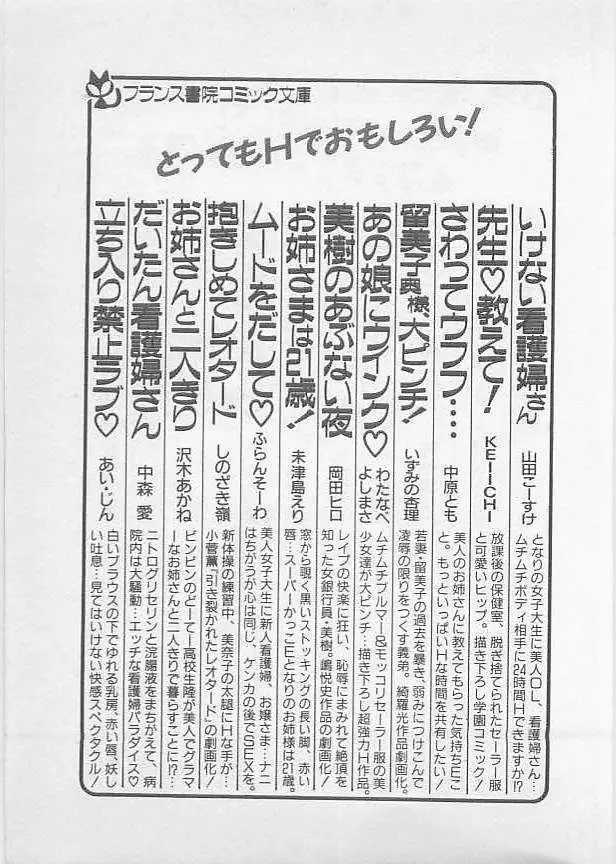 フランス書院コミック文庫
とってもHでおもしろい!
いけない看護婦さん
山田こーすけ
となりの女子大生に美人OL、看護婦さん…
ムチムチボディ相手に24時間Hできますか!?
先生♡教えて!
KEIICHI
放課後の保健室、脱ぎ捨てられたセーラー服
と可愛いヒップ。描き下ろし学園コミック!
さわってウフフ‥‥
中原とも
美人のお姉さんに教えてもらった気持ちEこ
と。もっといっぱいHな時間を共有したい!
留美子奥様、大ピンチ!
いずみの杳理
若妻・留美子の過去を暴き、弱みにつけこんで
凌辱の限りをつくす義弟。綺羅光作品劇画化。
あの娘にウインク♡
わたなべ
よしまさ
ムチムチブルマー&モッコリセーラー服の美
少女達が大ピンチ…描き下ろし超強力H作品。
美樹のあぶない夜
岡田ヒロ
レイプの快楽に狂い、恥辱にまみれて絶頂を
知った女銀行員・美樹。嶋悦史作品の劇画化!
お姉さまは21歳!
未津島えり
窓から覗く黒いストッキングの長い脚、赤い
唇…スーパーかっこEとなりのお姉様は21歳。
ムードをだして♡
ふらんそーわ
美人女子大生に新人看護婦、お嬢さま…ナニ
はちがうが心は同じ、ケンカの後でSEXを。
抱きしめてレオタード
しのざき嶺
新体操の練習中、美奈子の太腿にHな手が…
小菅薫『引き裂かれたレオタード』の劇画化!
お姉さんと二人きり
沢木あかね
ビンビンのどーてー高校生隆が美人でグラマ
ーなお姉さんと二人きりで暮らすことに!?…
だいたん看護婦さん
中森 愛
ニトログリセリンと浣腸液をまちがえて、病
院内は大騒動…エッチな看護婦パラダイス♡
立ち入り禁止ラブ♡
あい・じん
白いブラウスの下でゆれる乳房、赤い唇、妖し
い吐息…見てはいけない快感スペクタクル!